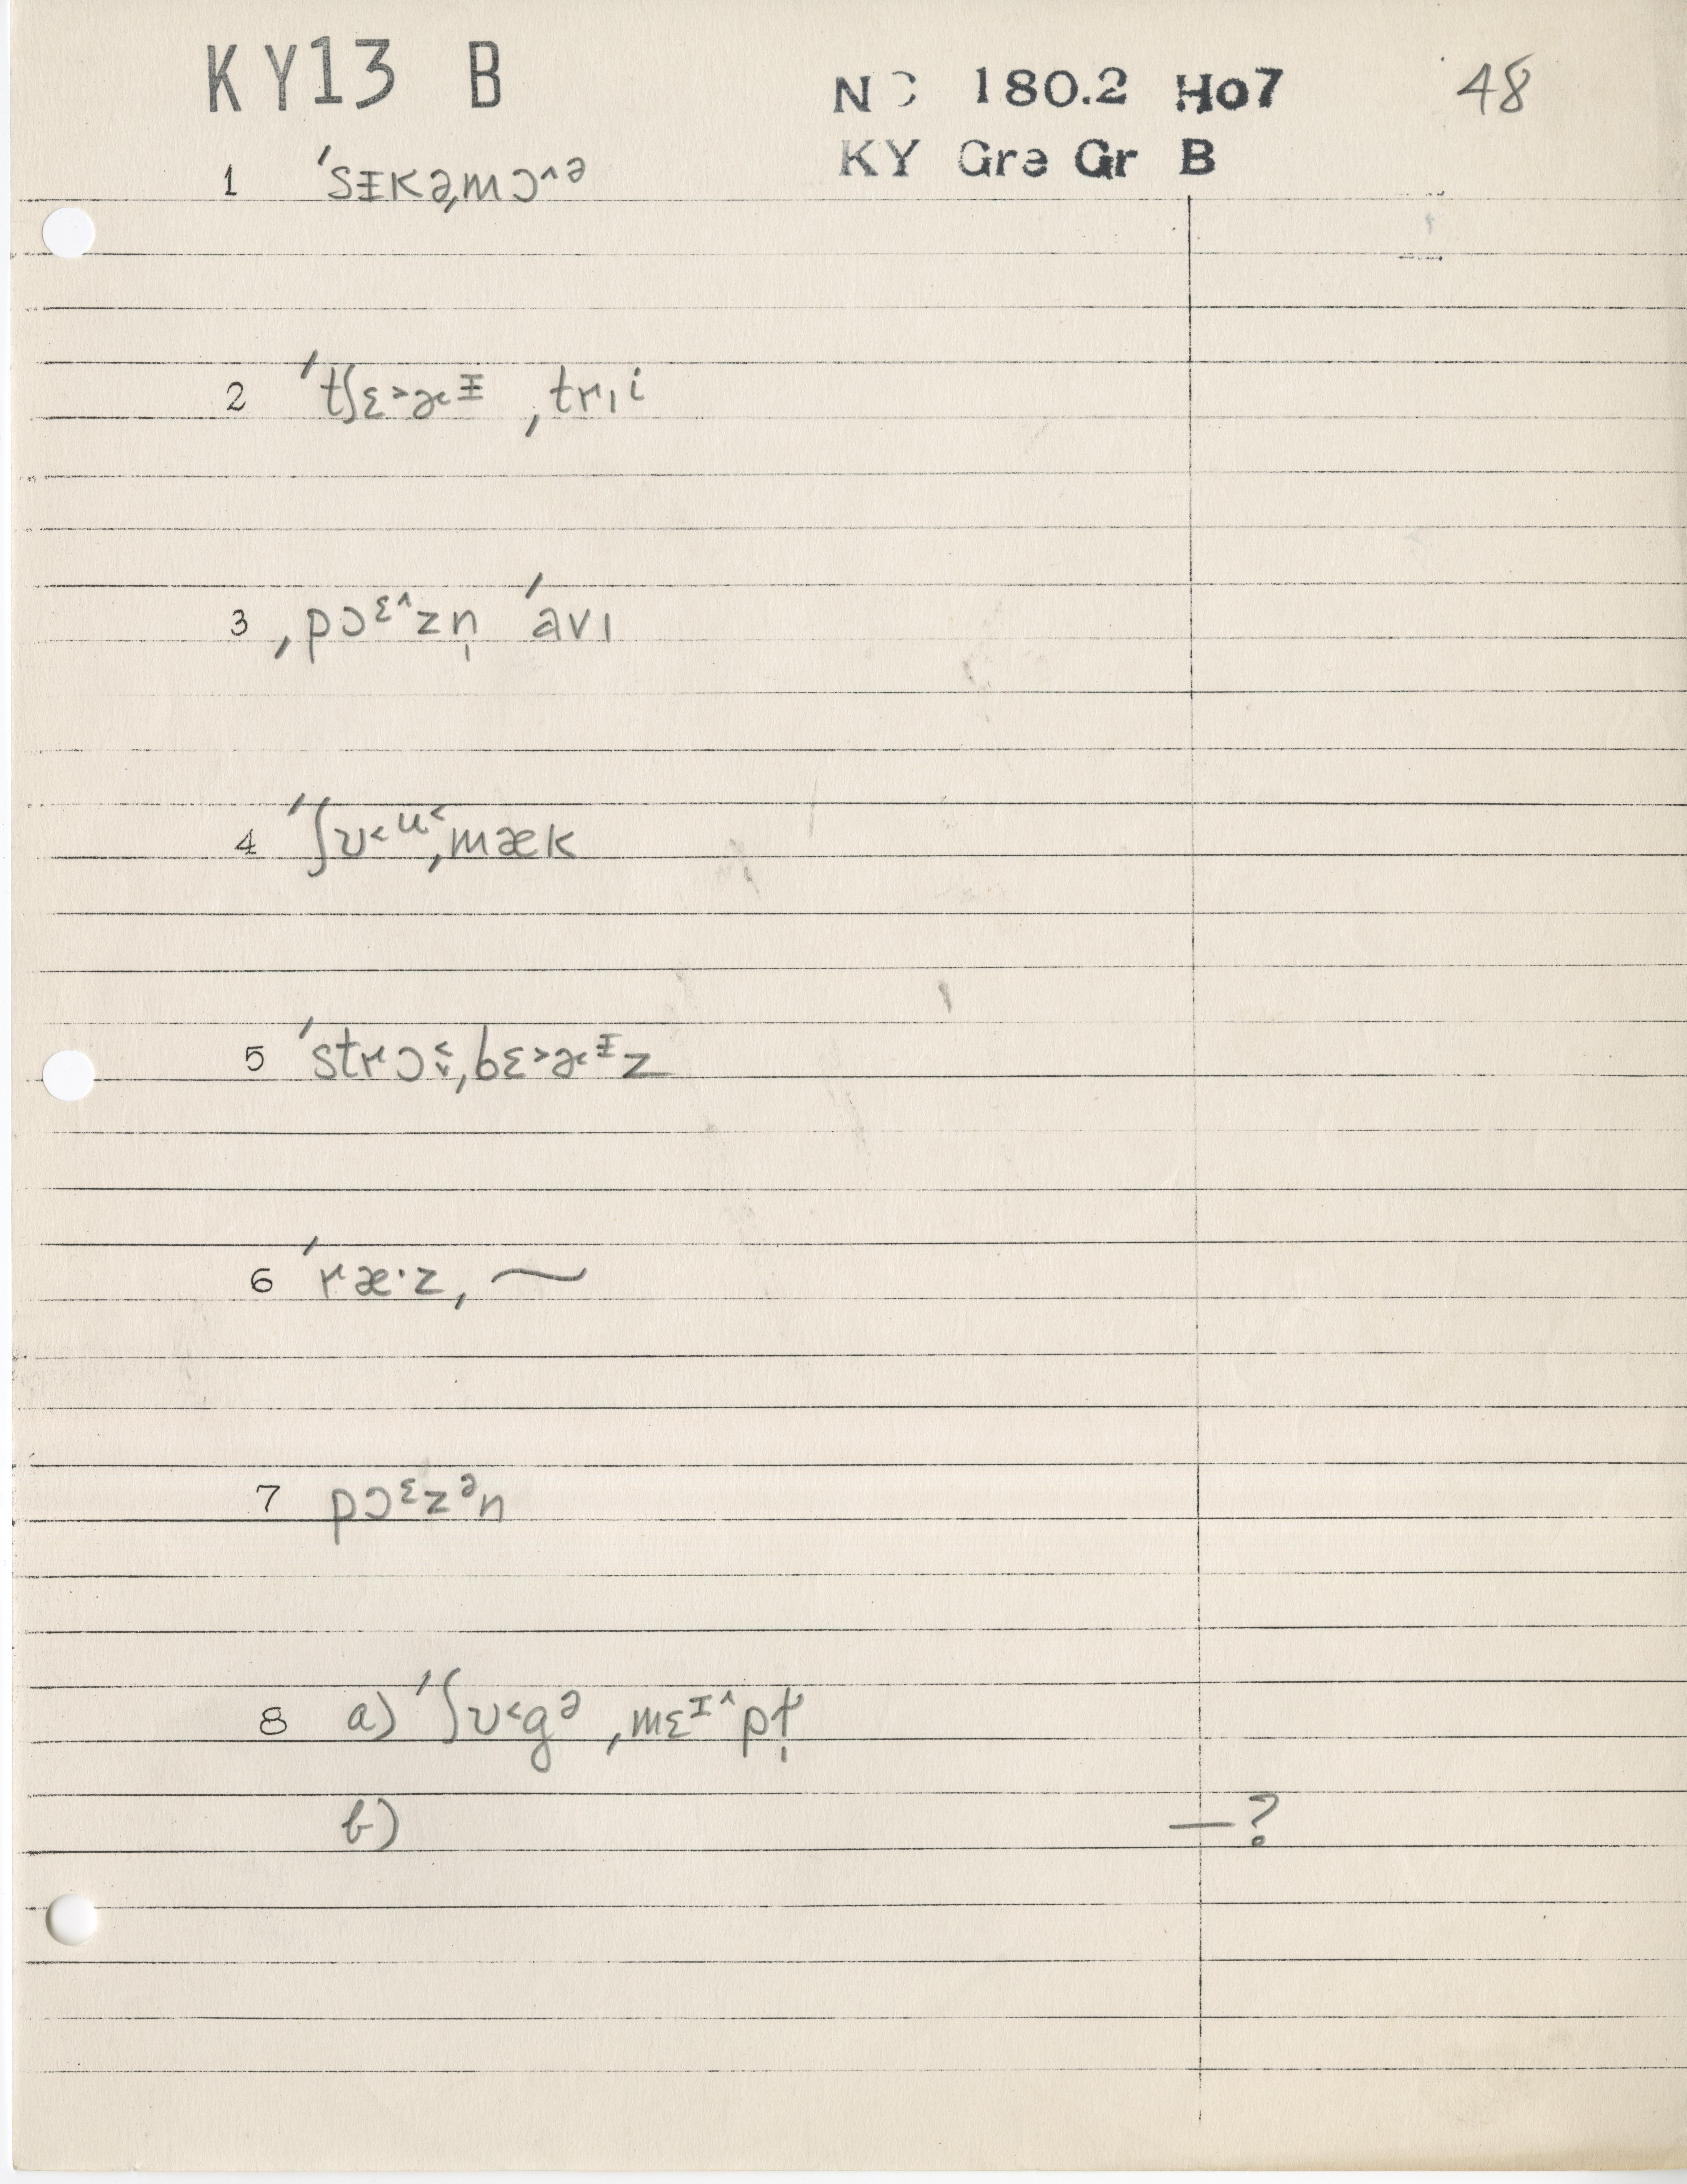 KY13 B
N C 180.2 Ho7
48
KY Gre Gr B
1 ˈsᵻkəˌmɔ^ᵊ
2 ˈtʃɛ˃ɚᵻ ˌtrˌi
3 ˌpɔᵋ^zn̩ ˈavɪ
4 ˈʃʊ˂ᵘ˂ˌmæk
5 ˈstrɔ˂̌ˌbɛ˃ɚᵻz
6 ˈræ·z, ⁓
7 pɔᵋzᵊn
8 a) ˈʃʊ˂gᵊ ˌmɛᶦ^pɫ̩
b) —?